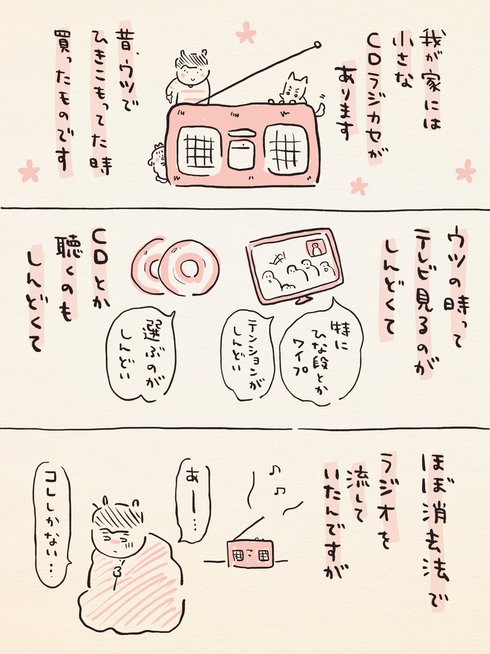 我が家には
小さな
CDラジカセが
あります
昔、ウツで
ひきこもってた時
買ったものです
ウツの時って
テレビ見るのが
しんどくて
特に
ひな段とか
ワイプ
テンションが
しんどい
CDとか
聴くのも
しんどくて
選ぶのが
しんどい
ほぼ消去法で
ラジオを
流して
いたんですが
あー…
コレしかない…